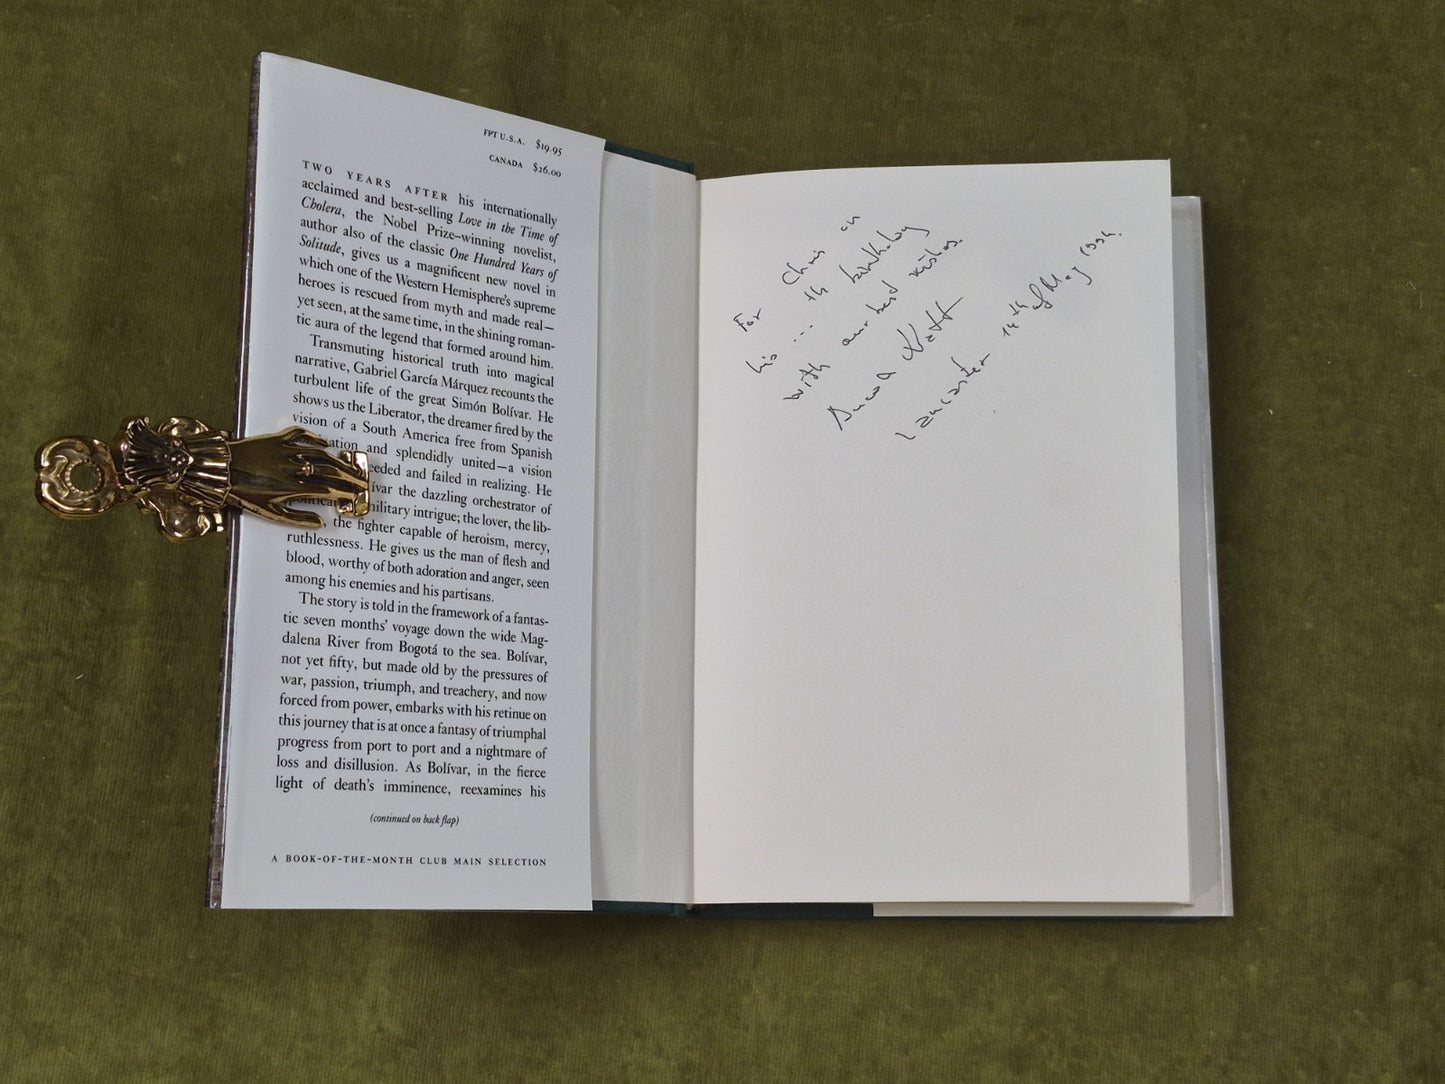 FPT U.S.A. $19.95
CANADA $26.00
TWO YEARS AFTER his internationally
acclaimed and best-selling Love in the Time of
Cholera, the Nobel Prize–winning novelist,
author also of the classic One Hundred Years of
Solitude, gives us a magnificent new novel in
which one of the Western Hemisphere's supreme
heroes is rescued from myth and made real—
yet seen, at the same time, in the shining roman-
tic aura of the legend that formed around him.
Transmuting historical truth into magical
narrative, Gabriel García Márquez recounts the
turbulent life of the great Simón Bolívar. He
shows us the Liberator, the dreamer fired by the
vision of a South America free from Spanish
and splendidly united—a vision
and failed in realizing. He
the dazzling orchestrator of
military intrigue; the lover, the lib-
the fighter capable of heroism, mercy,
ruthlessness. He gives us the man of flesh and
blood, worthy of both adoration and anger, seen
among his enemies and his partisans.
The story is told in the framework of a fantas-
tic seven months' voyage down the wide Mag-
dalena River from Bogotá to the sea. Bolívar,
not yet fifty, but made old by the pressures of
war, passion, triumph, and treachery, and now
forced from power, embarks with his retinue on
this journey that is at once a fantasy of triumphal
progress from port to port and a nightmare of
loss and disillusion. As Bolívar, in the fierce
light of death's imminence, reexamines his
(continued on back flap)
A BOOK-OF-THE-MONTH CLUB MAIN SELECTION
For Chris on
his ... th birthday
with our best wishes.
Lancaster 14th of May